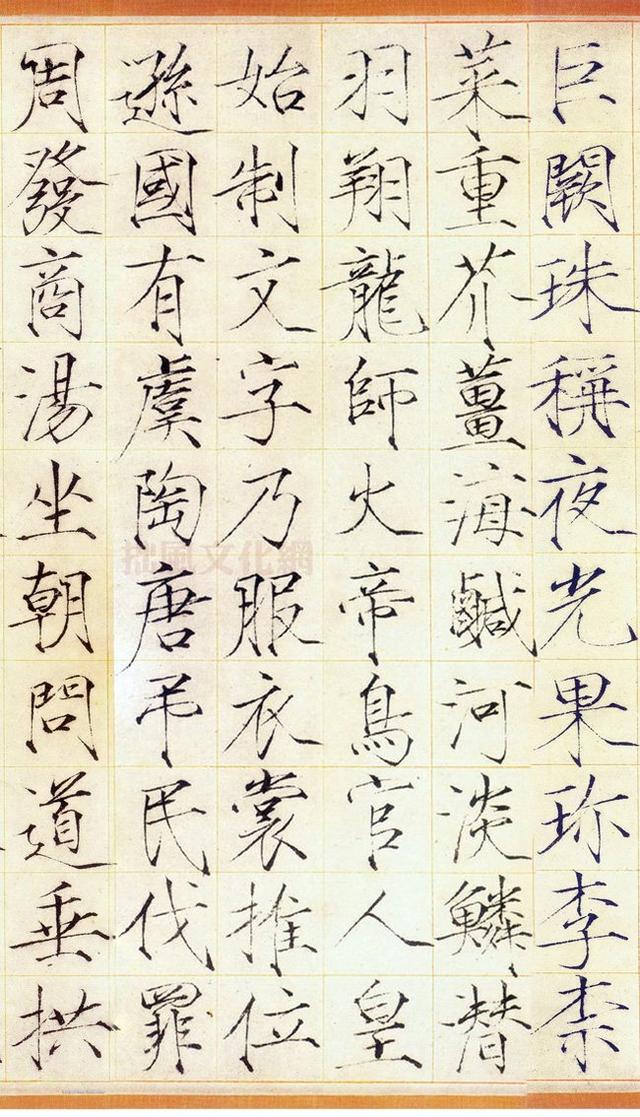 巨闕珠稱夜光果珎李柰
菜重芥薑海鹹河淡鱗潜
羽翔龍師火帝鳥官人皇
始制文字乃服衣裳推位
遜國有虞陶唐弔民伐罪
周發商湯坐朝問道垂拱
拙風文化網